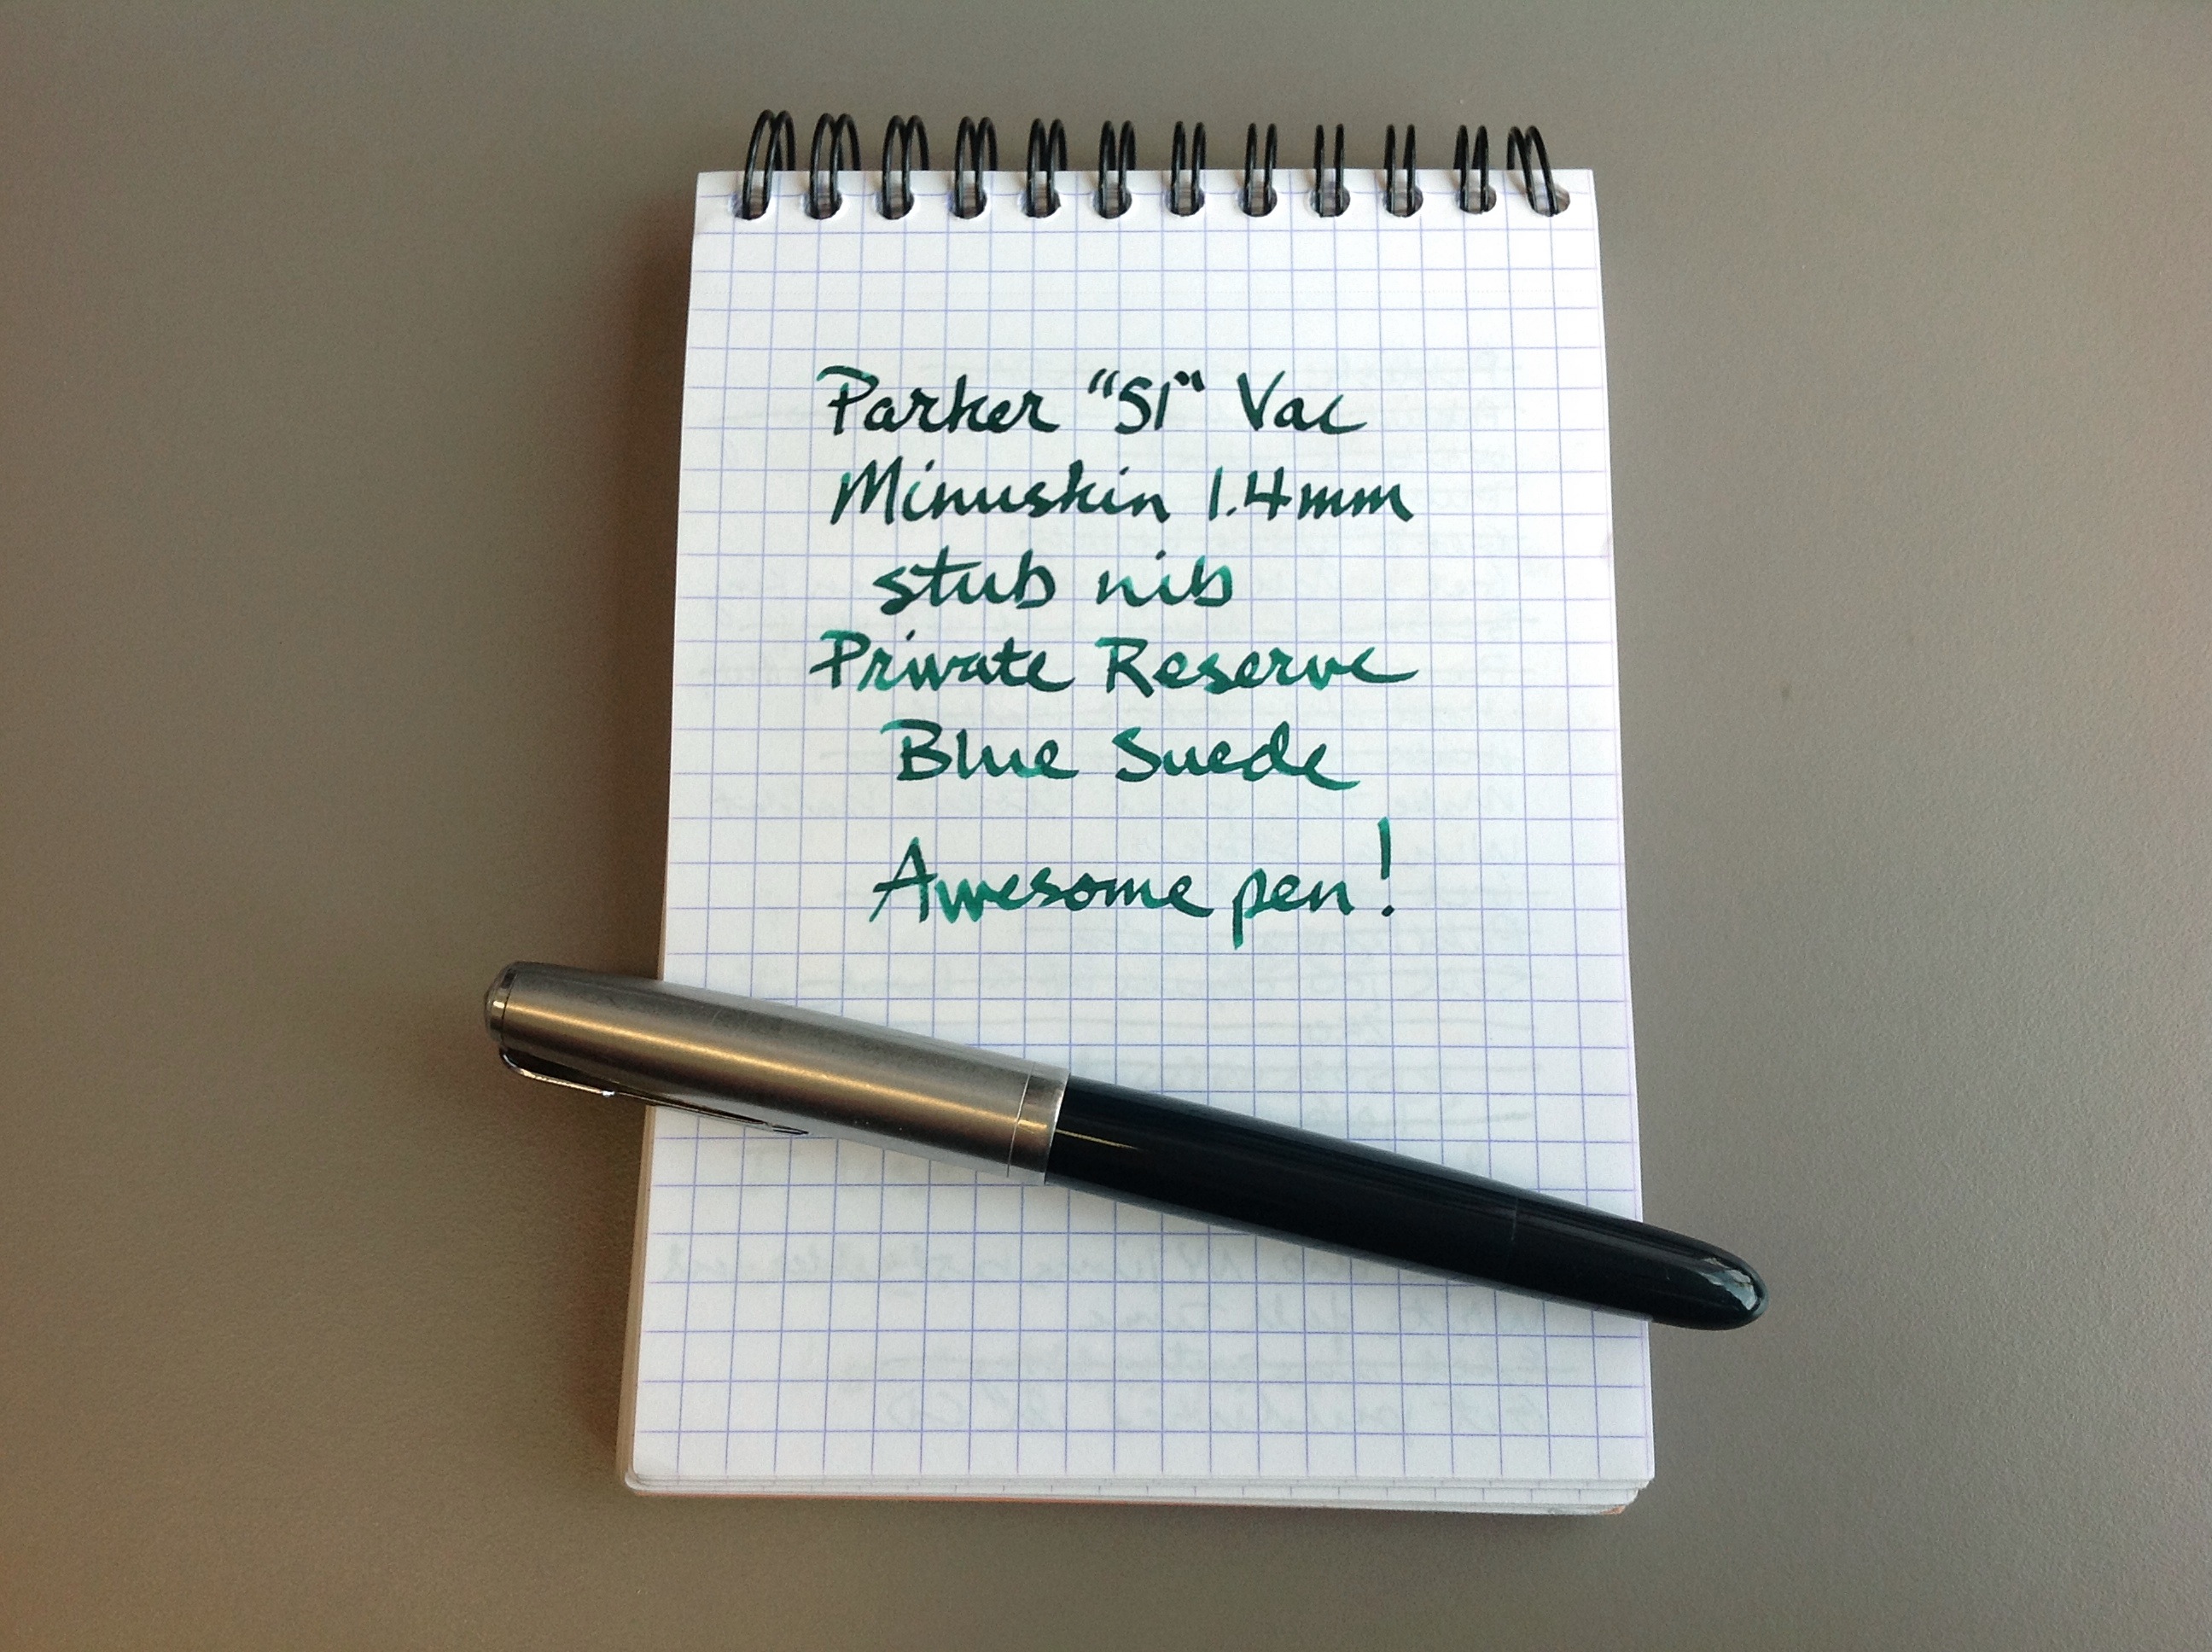 Parker "51" Vac
Minuskin 1.4mm
stub nib
Private Reserve
Blue Suede
Awesome pen!